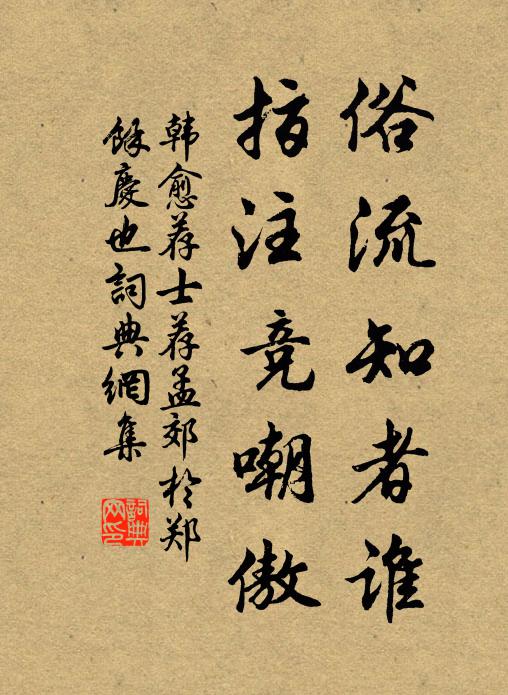 俗流知者谁
指注竞嘲傲
韩愈荐士荐孟郊於郑
馀慶也詞典網集
詞典
网印